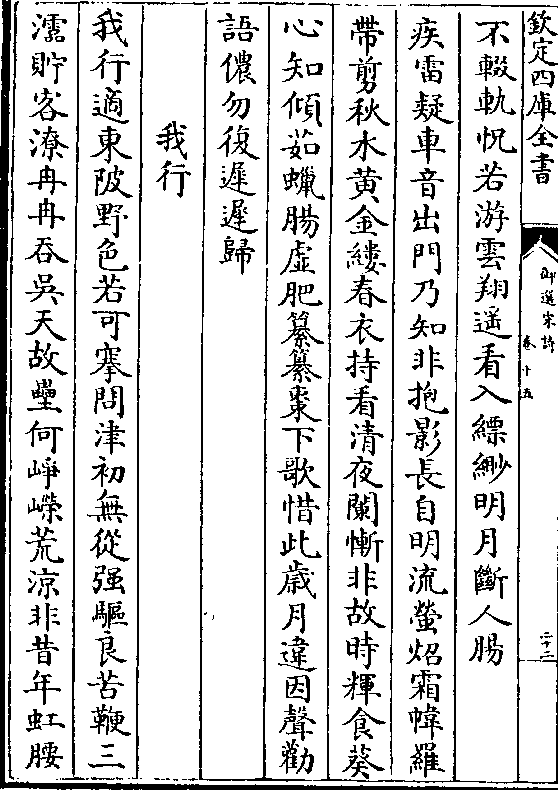 欽定四庫全書
御選宋詩
卷十五
二十三
不輟軌怳若游雲翔遥看入縹緲明月斷人腸
疾雷疑車音出門乃知非抱影長自明流螢炤霜幃羅
帶剪秋水黄金縷春衣持看清夜闌慚非故時輝食葵
心知傾茹蠟腸虛肥纂纂棗下歌惜此歲月違因聲勸
語儂勿復遲遲歸
我行
我行適東陂野色若可搴問津初無從强驅良苦鞭三
濡貯客潦冉冉吞吳天故壘何崢嶸荒涼非昔年虹腰